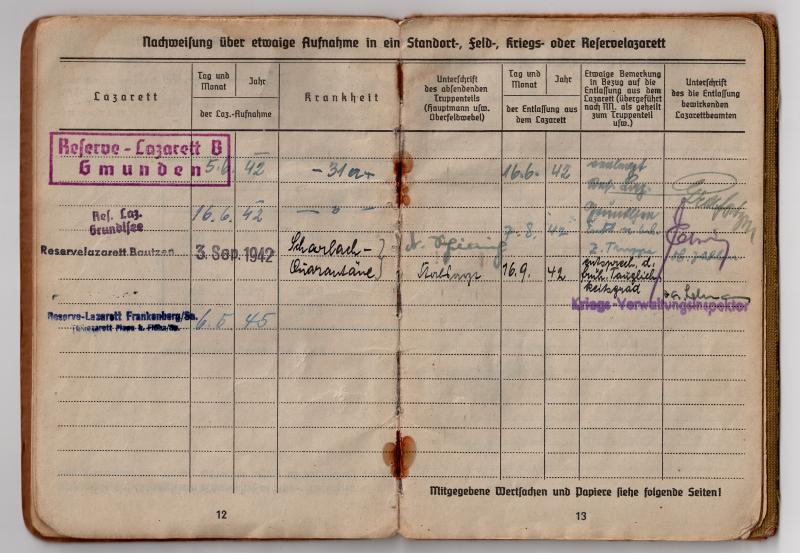 Nachweisung über etwaige Aufnahme in ein Standort-, Feld-, Kriegs- oder Reservelazarett
Lazarett
Tag und Monat
Jahr
der Laz.-Aufnahme
Krankheit
Unterschrift
des absendenden
Truppenteils
(Hauptmann usw.
Oberfeldwebel)
Tag und Monat
Jahr
der Entlassung aus
dem Lazarett
Etwaige Bemerkung
in Bezug auf die
Entlassung aus dem
Lazarett (übergeführt
nach NN, als geheilt
zum Truppenteil
usw.)
Unterschrift
des die Entlassung
bewirkenden
Lazarettbeamten
Reserve-Lazarett B
Gmunden 5.6. 42 16.6. 42
Res. Laz.
Grundlsee 16.6. 42 7.8. 42
Reservelazarett Bautzen 3. Sep. 1942 Scharlach-
Quarantäne 16.9. 42 entsprech. d.
früh. Tauglich-
keitsgrad
Kriegs-Verwaltungsinspektor
Reserve-Lazarett Frankenberg/Sa. 45
Mitgegebene Wertsachen und Papiere siehe folgende Seiten!
12
13